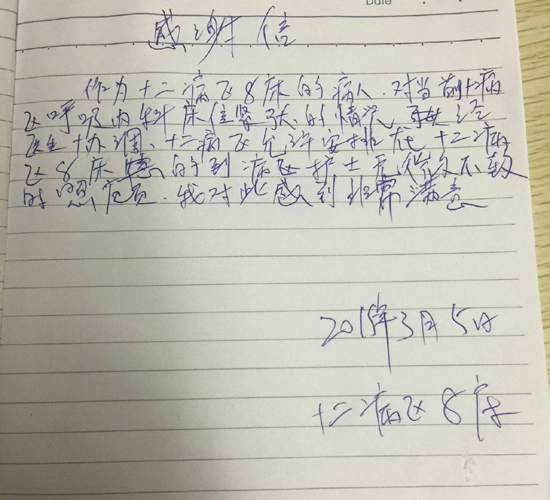 Date
感谢信
作为十二病区8床的病人.对当前十病
区呼吸内科床位紧张的情况,
医生协调、十二病区允许安排在十二病
区8床 的到病区护士无微不致
的照 .我对此感到非常满意
2015年3月5日
十二病区8床